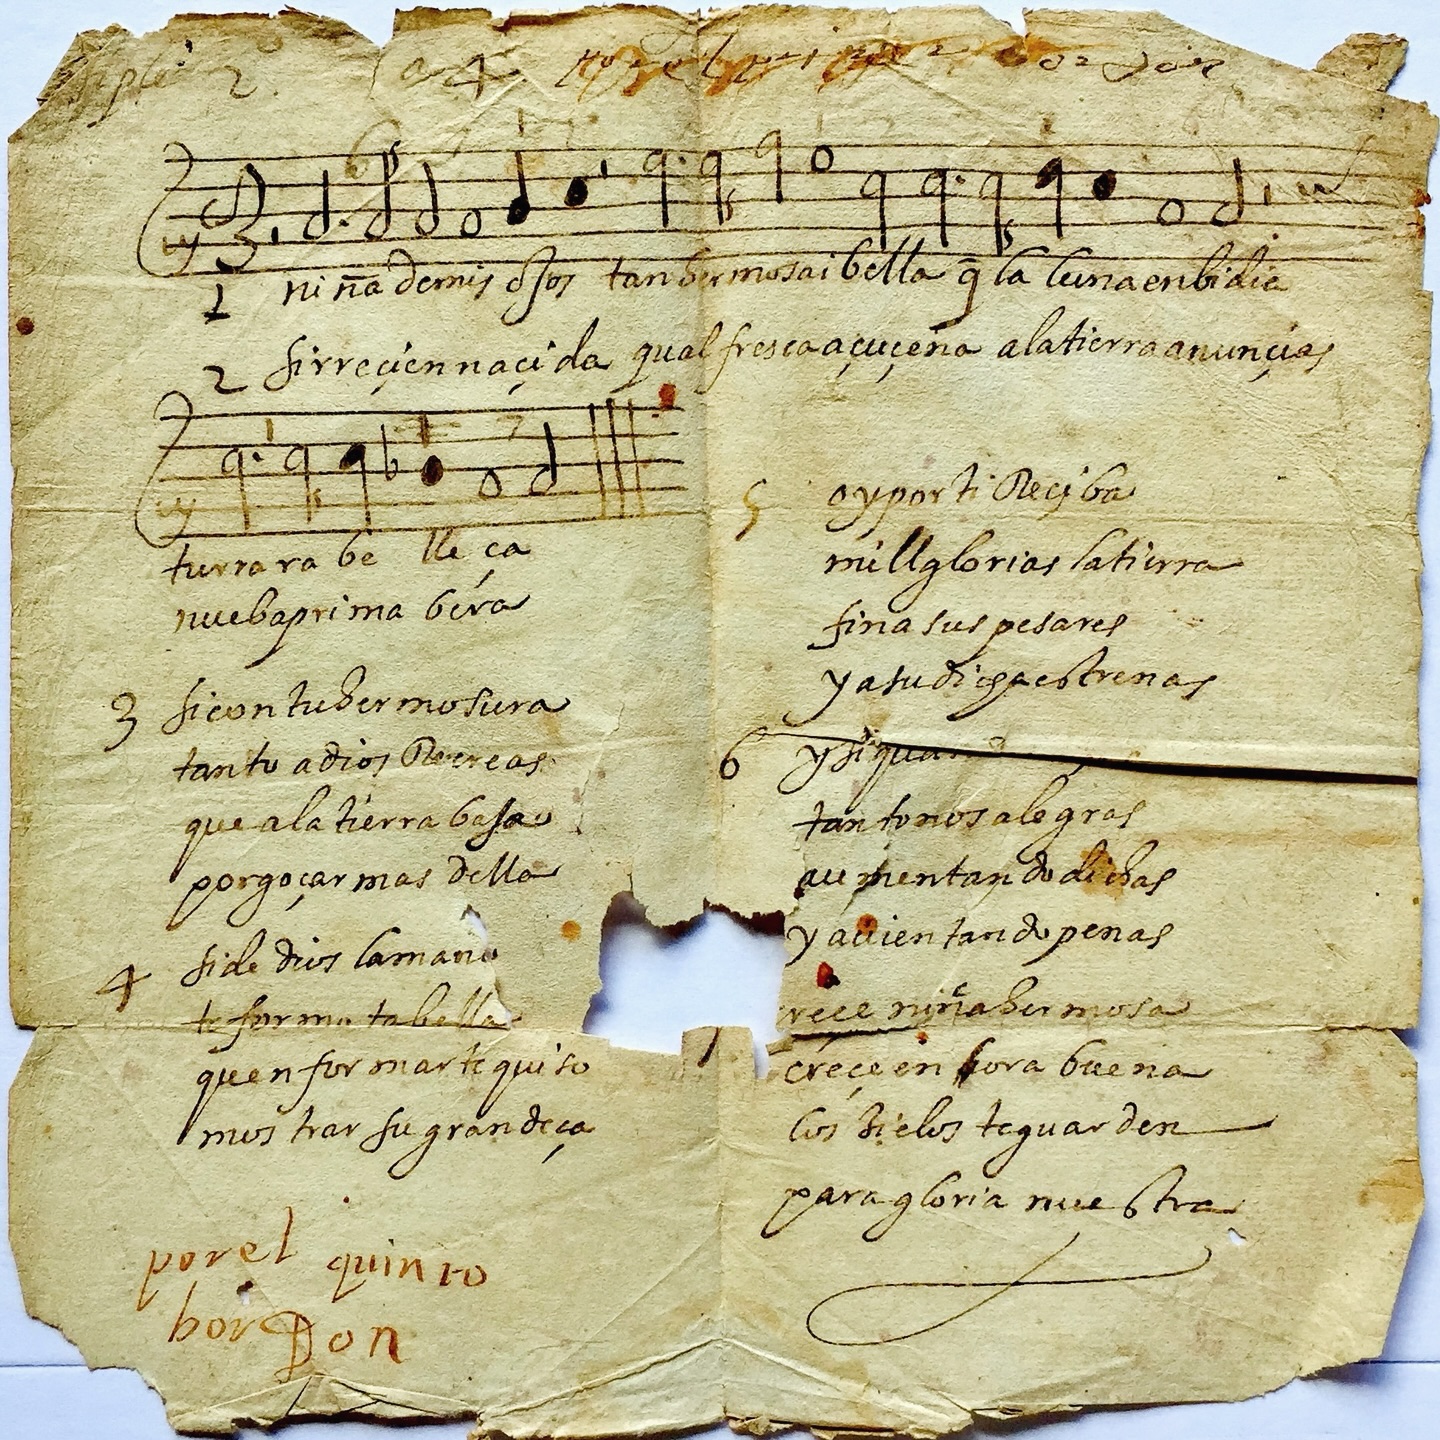 tiple 2 a 4 por el bordon
1 niña de mis ojos tan hermosa i bella q̃ la luna enbidia
2 si rreçien naçida qual fresca açuçena a la tierra anunçias
tu rrara be lle ça
nueba prima bera
3 si con tu hermosura
tanto a dios Recreas
que a la tierra basa
por goçar mas della
4 si de dios la mano
te formo ta bella
quen formarte quiso
mostrar su grandeça
por el quinto
borDon
5 oy por ti Reçiba
mill glorias la tierra
fin a sus pesares
y a su dicha estrenas
6 y si
tanto nos alegras
aumentando dichas
y auientando penas
creçe niña hermosa
creçe en hora buena
los sielos te guarden
para gloria nuestra